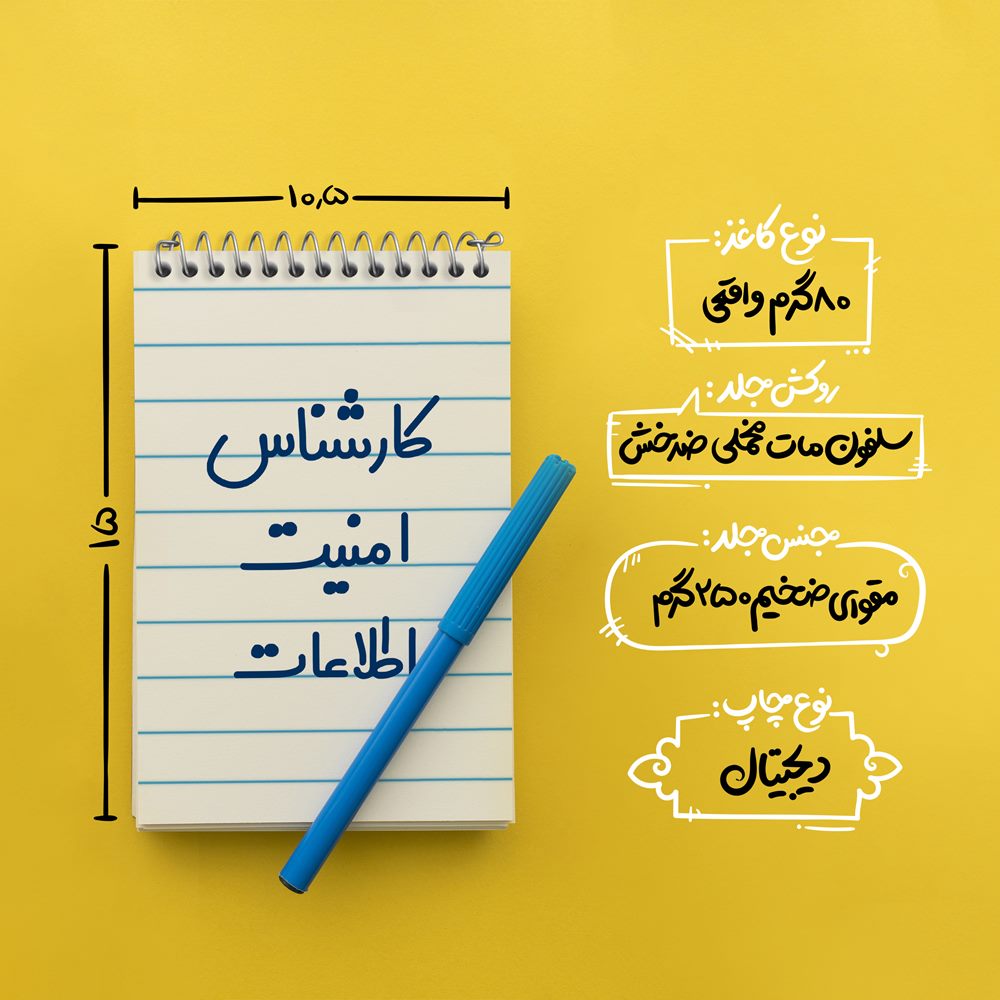 ۱۰٫۵
۱۵
کارشناس
امنیت
اطلاعات
نوع کاغذ:
۸۰ گرم واقعی
روکش جلد:
سلفون مات مخملی ضدخش
جنس جلد:
مقوای ضخیم ۲۵۰ گرم
نوع چاپ:
دیجیتال